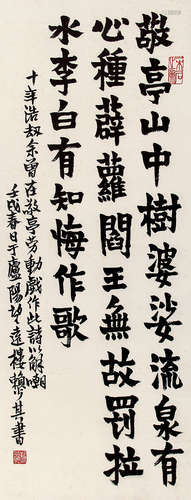 敬亭山中樹婆娑流泉有
心種薜蘿閻王無故罰拉
水李白有知悔作歌
十年浩劫余曾在敬亭劳動戲作此詩以解嘲
壬戌春日于廬陽遠樓賴少其書